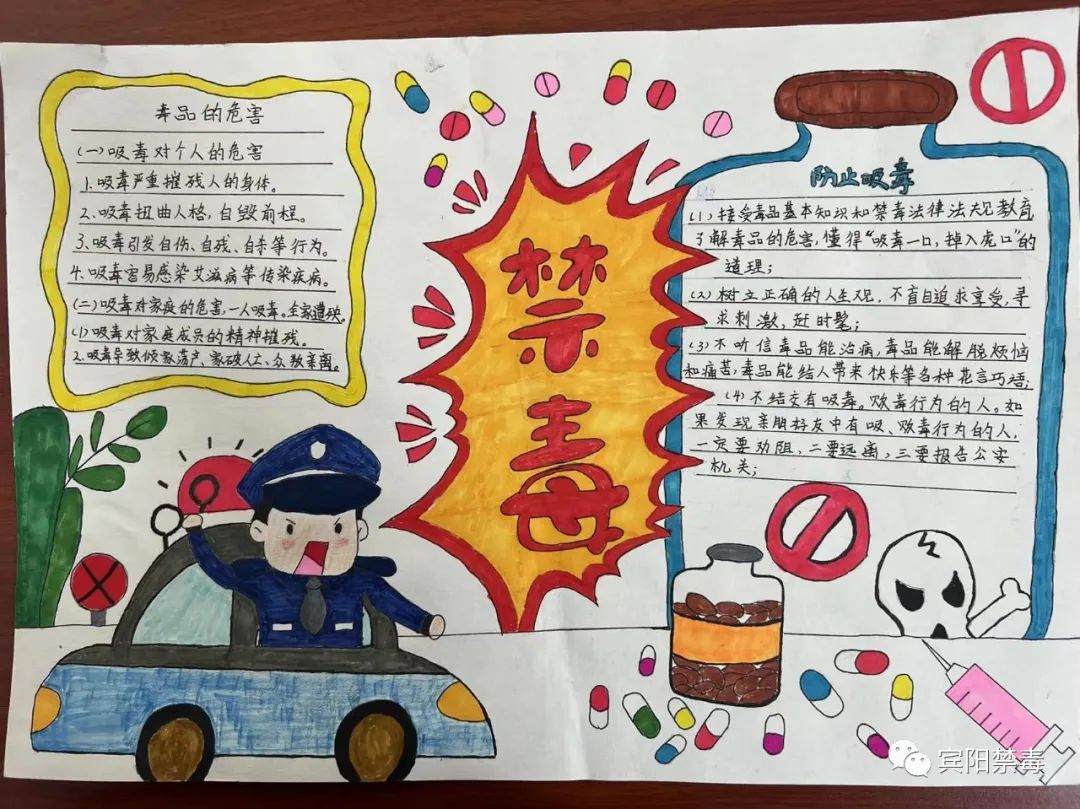 毒品的危害
(一)吸毒对个人的危害
1.吸毒严重摧残人的身体。
2、吸毒扭曲人格,自毁前程。
3、吸毒引发自伤、自残、自杀等行为。
4.吸毒容易感染艾滋病等传染疾病。
(二)吸毒对家庭的危害,一人吸毒。全家遭殃。
(1)吸毒对家庭成员的精神摧残。
2.吸毒导致倾家荡产、家破人亡、众叛亲离。
禁毒
防止吸毒
(1)接受毒品基本知识和禁毒法律法规教育,
了解毒品的危害,懂得“吸毒一口,掉入虎口”的
道理;
(2)树立正确的人生观,不盲目追求享受,寻
求刺激,赶时髦;
(3)不听信毒品能治病,毒品能解脱烦恼
和痛苦,毒品能给人带来快乐等各种花言巧语;
(4)不结交有吸毒。贩毒行为的人。如
果发现亲朋好友中有吸、贩毒行为的人,
一定要劝阻,二要远离,三要报告公安
机关;
宾阳禁毒